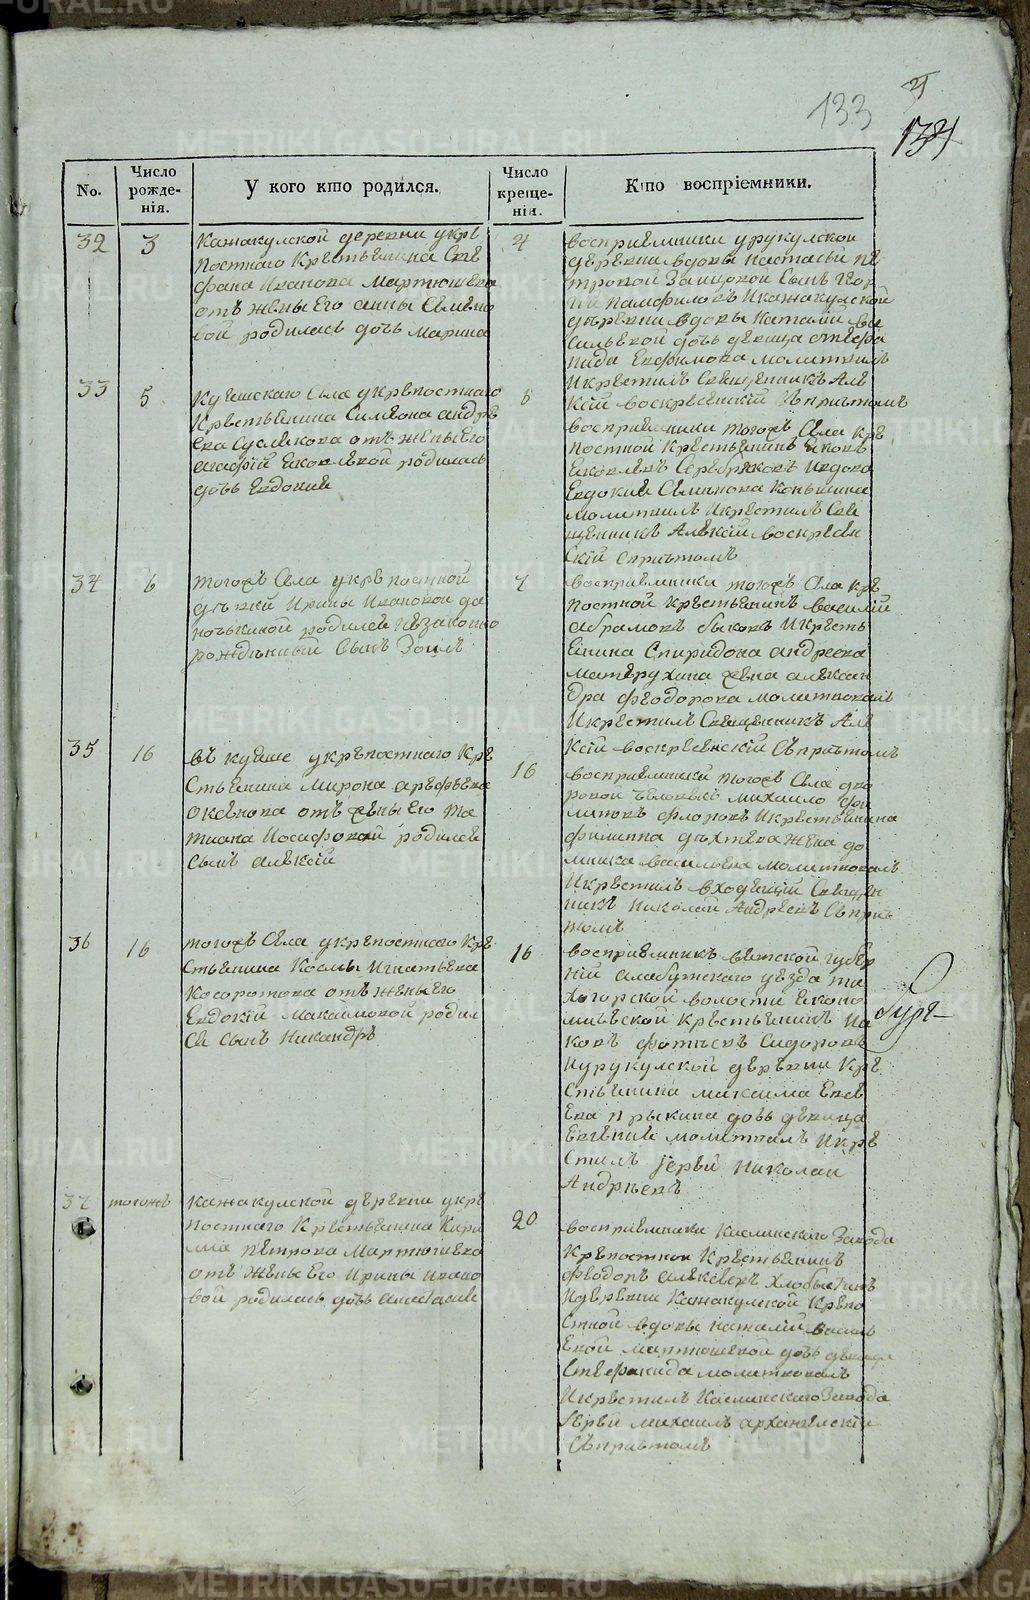 133
134
No.
Число рожде- нія.
У кого кто родился.
Число креще- ніи.
Кто воспріемники.
32
3
Кажакулской деревни укрѣ
постнаго Крестьянина Сте
фана Иванова Мартюшева
отъ жены Его анны Семено
вой родилась дочь Марина
4
восприемники урукулской
деревни вдовы настасьи пе
тровой Заицовой Сынъ Геор
гій Памфиловъ Икажакулской
деревни вдовы Наталіи Ва
сильевой дочь девица Стефа
нида Евфимова молитвилъ
Икрестилъ Священникъ Але
ксій воскресенскій Съпричтомъ
33
5
Куяшскаго Села укрепостнаго
Крестьянина Симеона андре
ева Суслекова отъ жены Его
Яковлевой родилась
дочь Евдокия
5
восприемники тогожъ Села кре
постной Крестьянинъ Яковъ
Яковлевъ Серебряковъ Ивдова
Евдокия Семенова Коньшина
молитвилъ Икрестилъ Свя
щенникъ Алексій воскресен
скій Спричтомъ
34
6
тогожъ Села укрепостной
девки Ирины Ивановой
родился незаконно
рожденный Сынъ Зоилъ
7
восприемники тогожъ Села кре
постной Крестьянинъ василій
абрамовъ быковъ Икресть
янина Спиридона андреева
Матерухина жена алексан
дра феодорова молитвовалъ
Икрестилъ Священникъ Але
ксій воскресенскій Съпричтомъ
35
16
въ куяше укрепостнаго Кре
стьянина Мирона арефьева
Оксенова отъ жены Его та
тиана Иосафовой родился
Сынъ алексій
16
восприемники тогожъ Села дво
ровой человекъ михаило
флоровъ Икрестьянина
филиппа дехтева жена до
мника васильева молитвовалъ
Икрестилъ входящій Священ
никъ Николаи Андреевъ Съприч
томъ
36
16
тогожъ Села укрепостнаго Кре
стьянина Космы Игнатьева
Косоротова отъ жены Его
Евдокій Максимовой родил
ся Сынъ Никандръ
16
восприемникъ вятской губер
ній алабужскаго уезда
волости Эконо
мической Крестьянинъ Иа
ковъ фотеевъ Сидоровъ
Иурукулской деревни Кре
стьянина максима Евсе
ева Прыкина дочь девица
Евгения молитвилъ Икре
стилъ Іерей Николаи
Андреевъ
37
тогожъ
Кажакулской деревни укре
постнаго Крестьянина Кири
ла Петрова Мартюшева
отъ жены Его Ирины Ивано
вой родилась дочь анастасия
20
восприемники Каслинскаго Завода
Крепостной Крестьянинъ
феодоръ алексеевъ Хлобыстинъ
Идеревни Кажакулской Крепо
стной вдовы наталіи василь
евой мартюшевой дочь девица
Стефанида молитвовалъ
Икрестилъ Каслинскаго Завода
Іерей михаилъ архангелскій
Съпричтомъ
METRIKI.GASO-URAL.RU